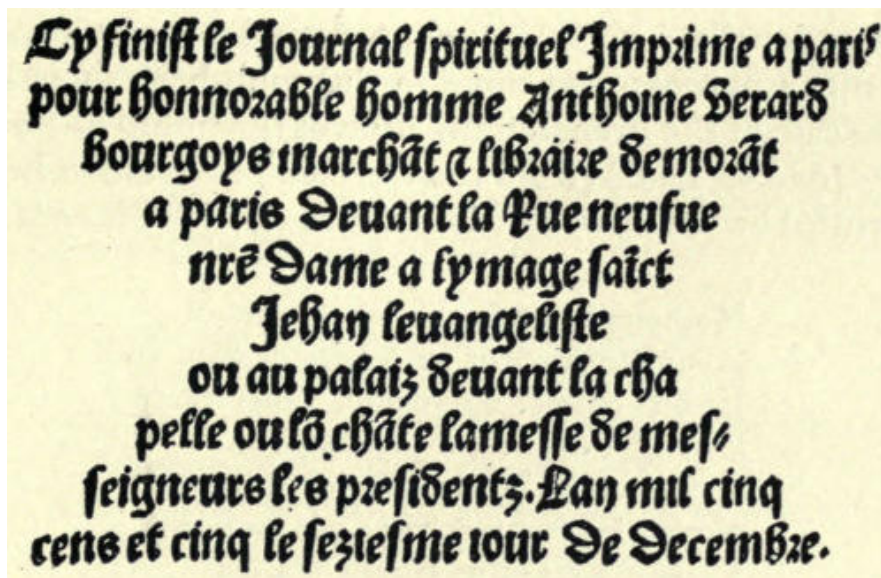 Cy finist le Journal spirituel Imprime a paris
pour honnorable homme Anthoine Verard
bourgoys marchãt & libraire demorãt
a paris Devant la Rue neufve
nrẽ Dame a lymage saĩct
Jehan levangeliste
ou au palaiz devant la cha
pelle ou lõ chãte lamesse de mes⸗
seigneurs les presidentz. Lan mil cinq
cens et cinq le seziesme iour De Decembre.